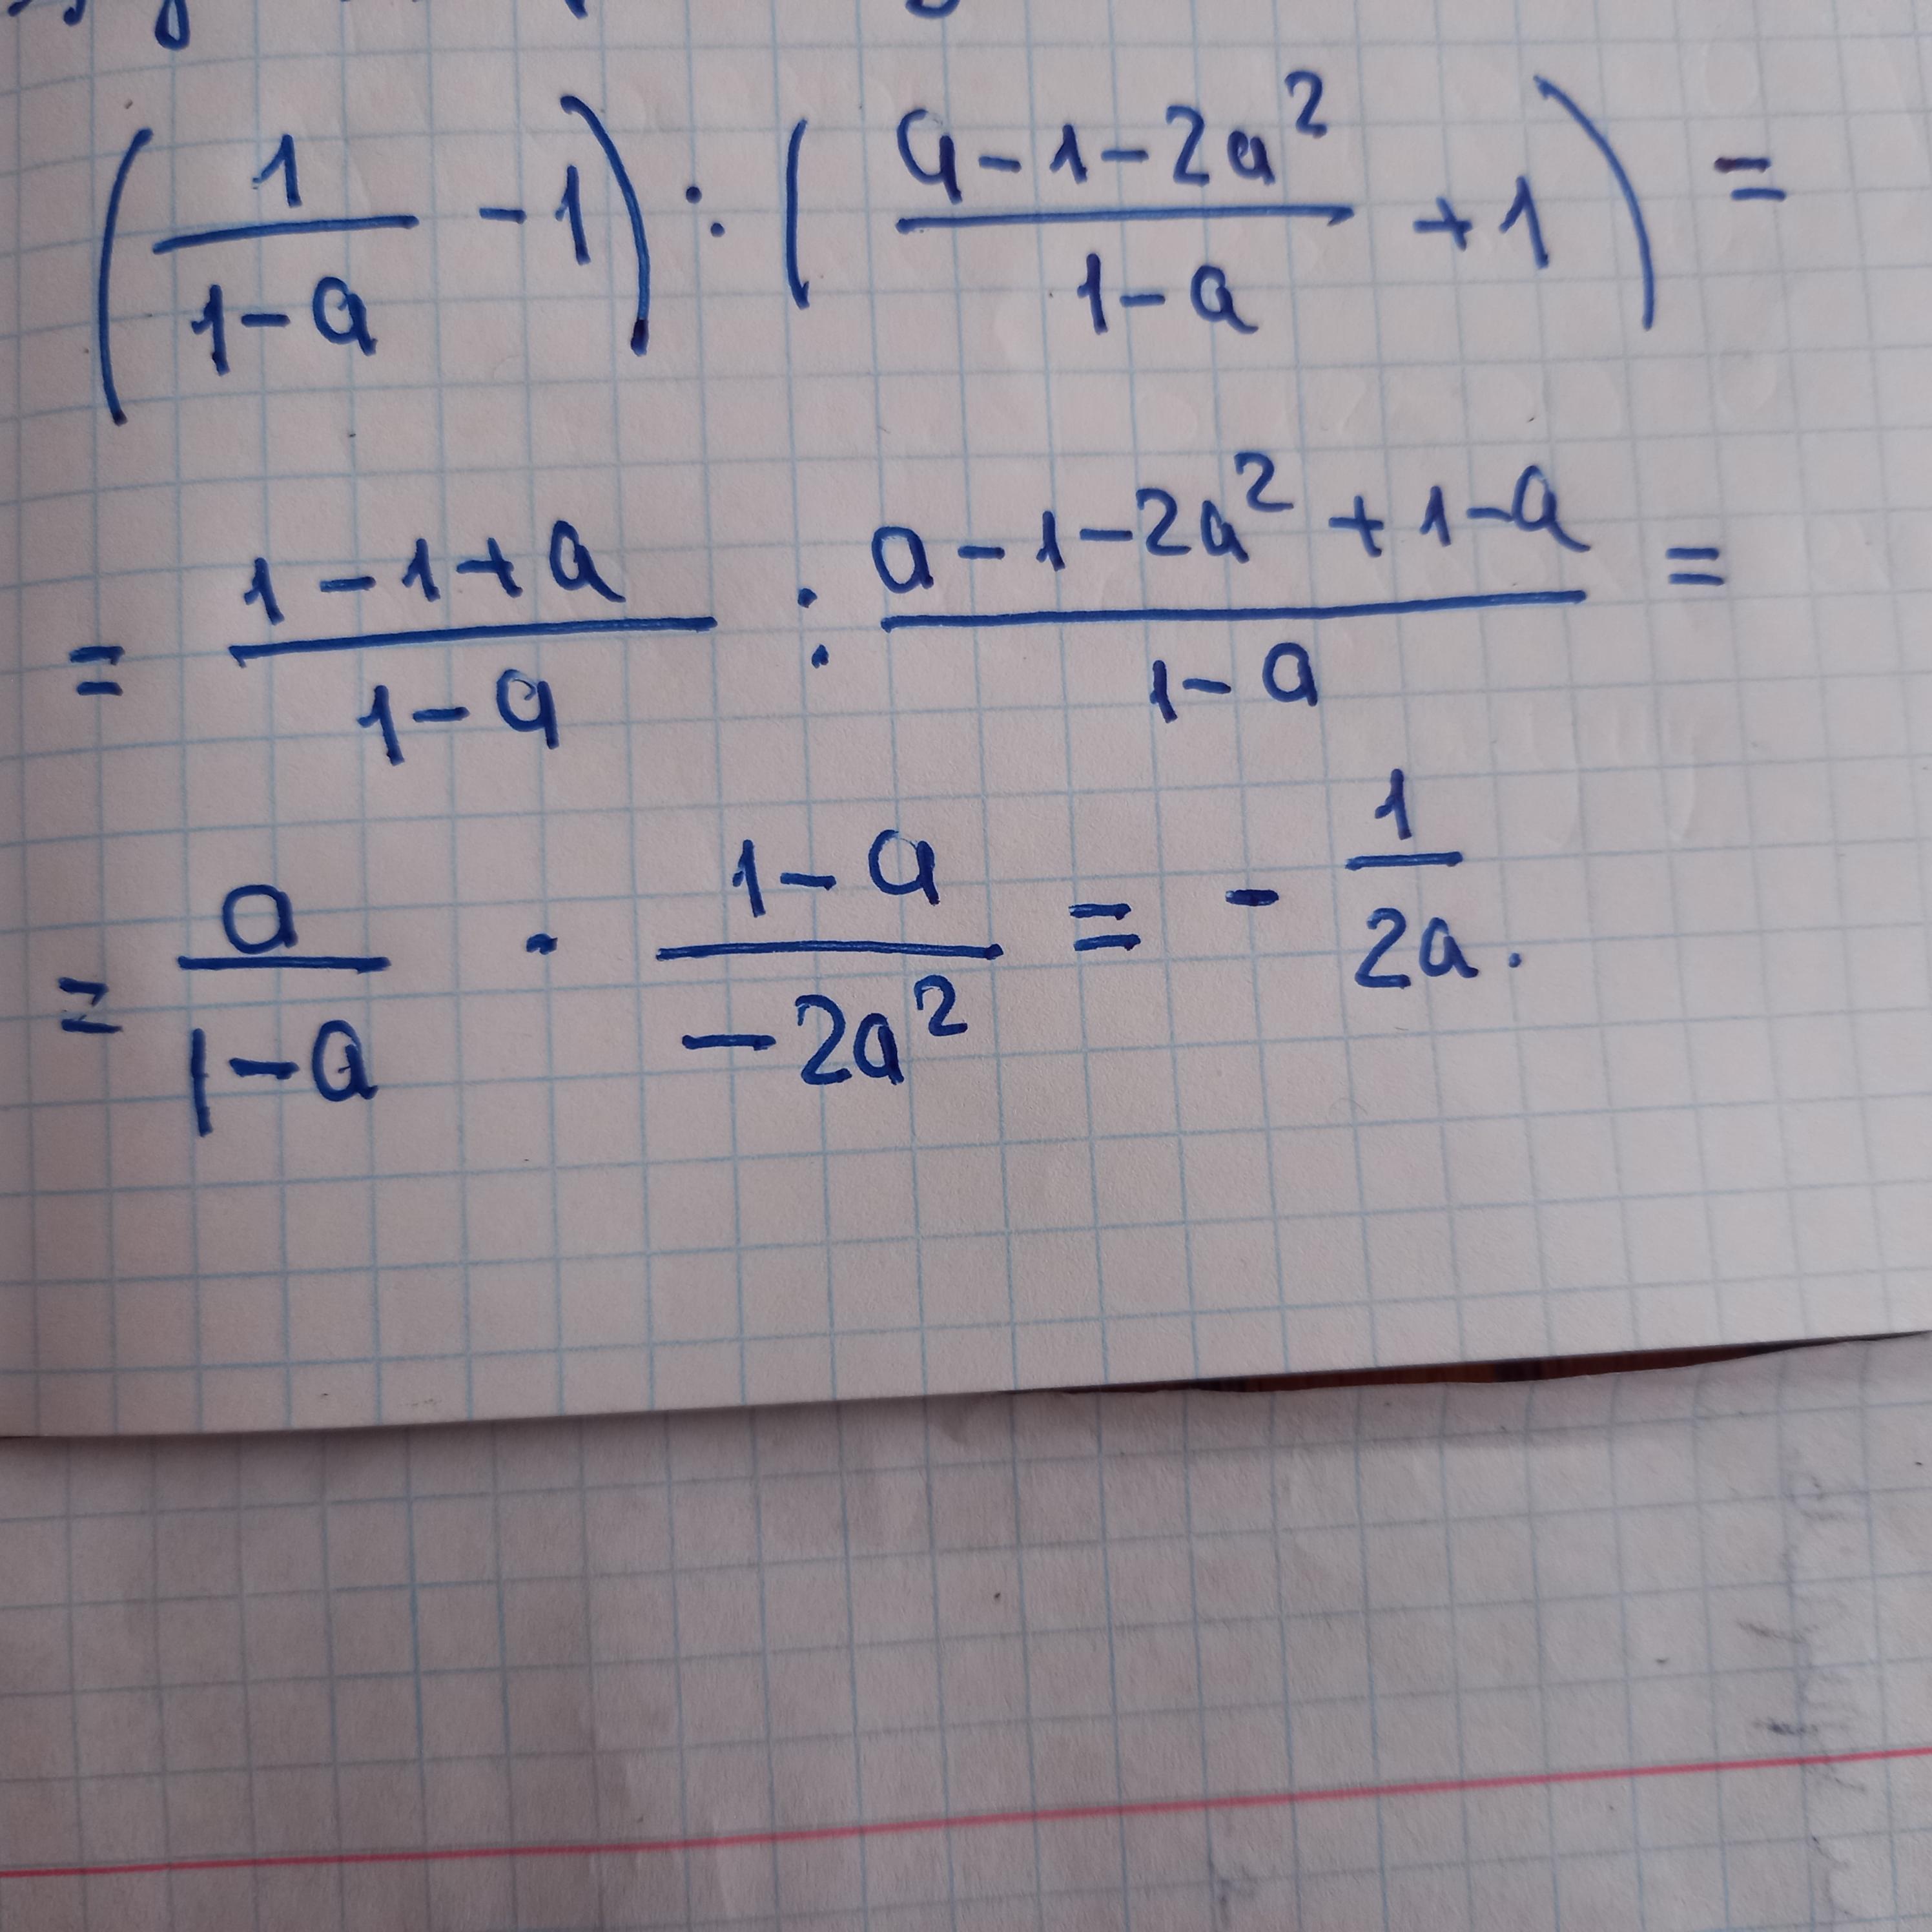 (1/(1-a) - 1) : ((a-1-2a²)/(1-a) + 1) =
= (1-1+a)/(1-a) : (a-1-2a²+1-a)/(1-a) =
= a/(1-a) · (1-a)/(-2a²) = - 1/(2a).